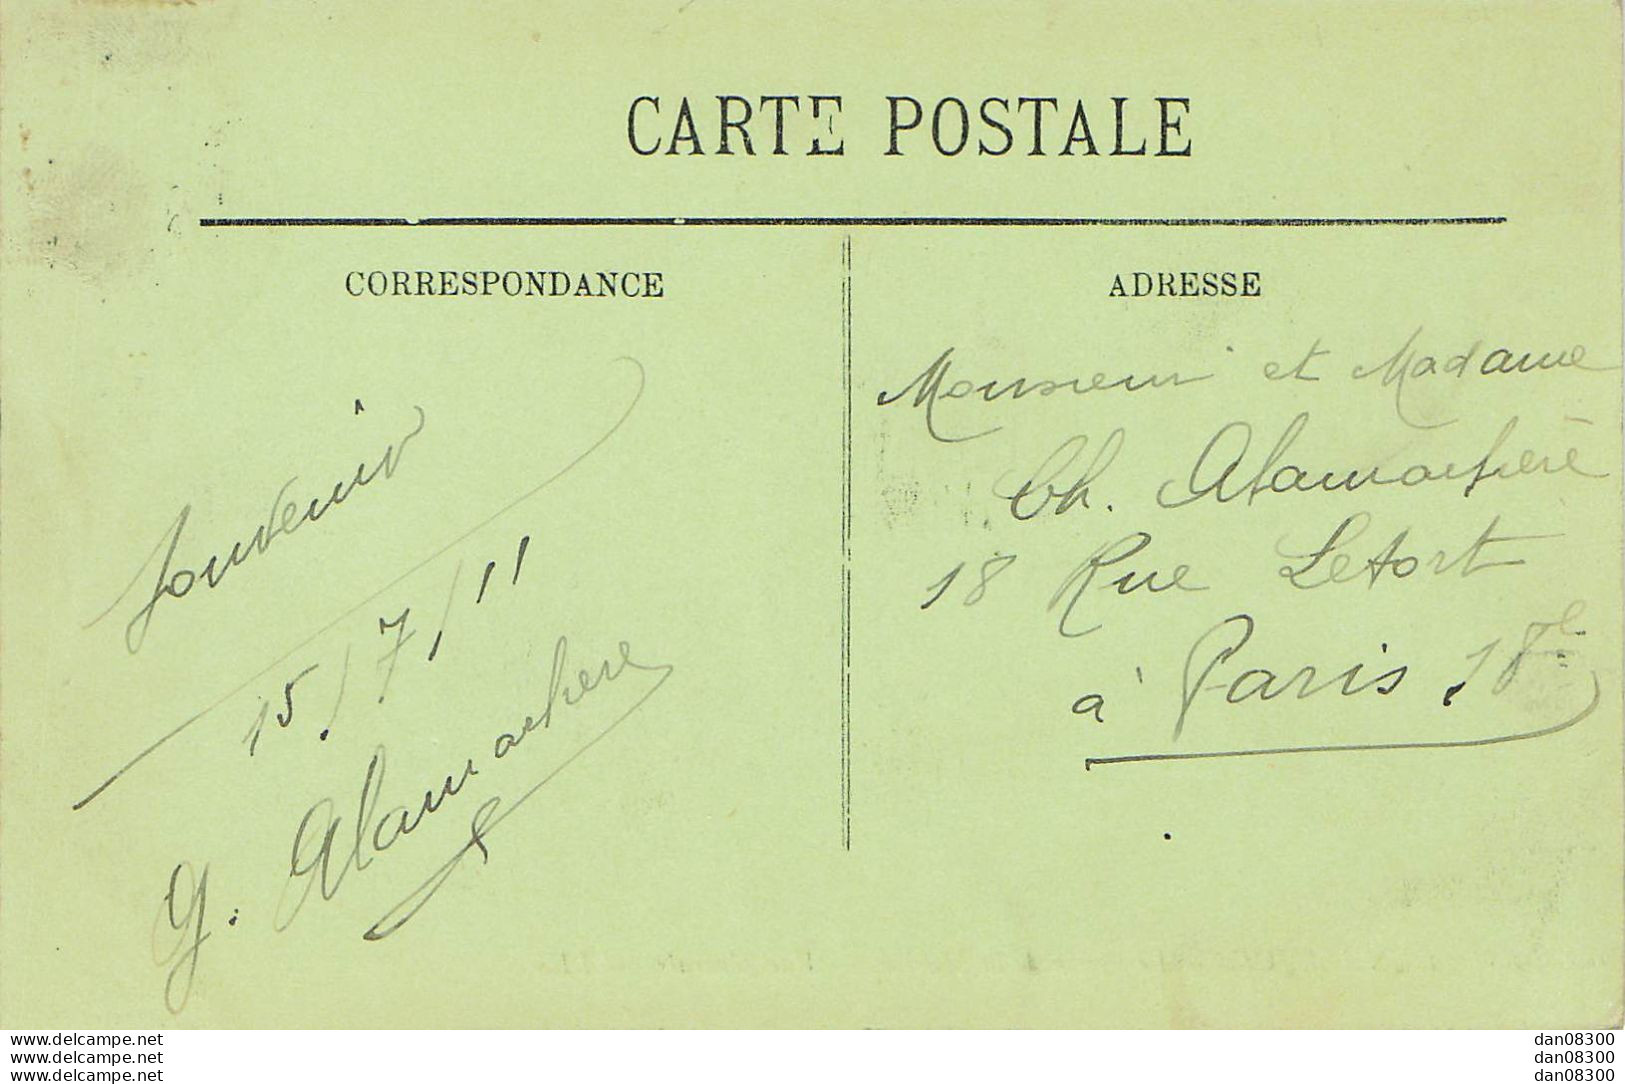 CARTE POSTALE
CORRESPONDANCE
ADRESSE
Souvenir
15/7/11
G. Alamarhere
Monsieur et Madame
Ch. Alamarhère
18 Rue Letort
à Paris 18e
www.delcampe.net
www.delcampe.net
www.delcampe.net
dan08300
dan08300
dan08300